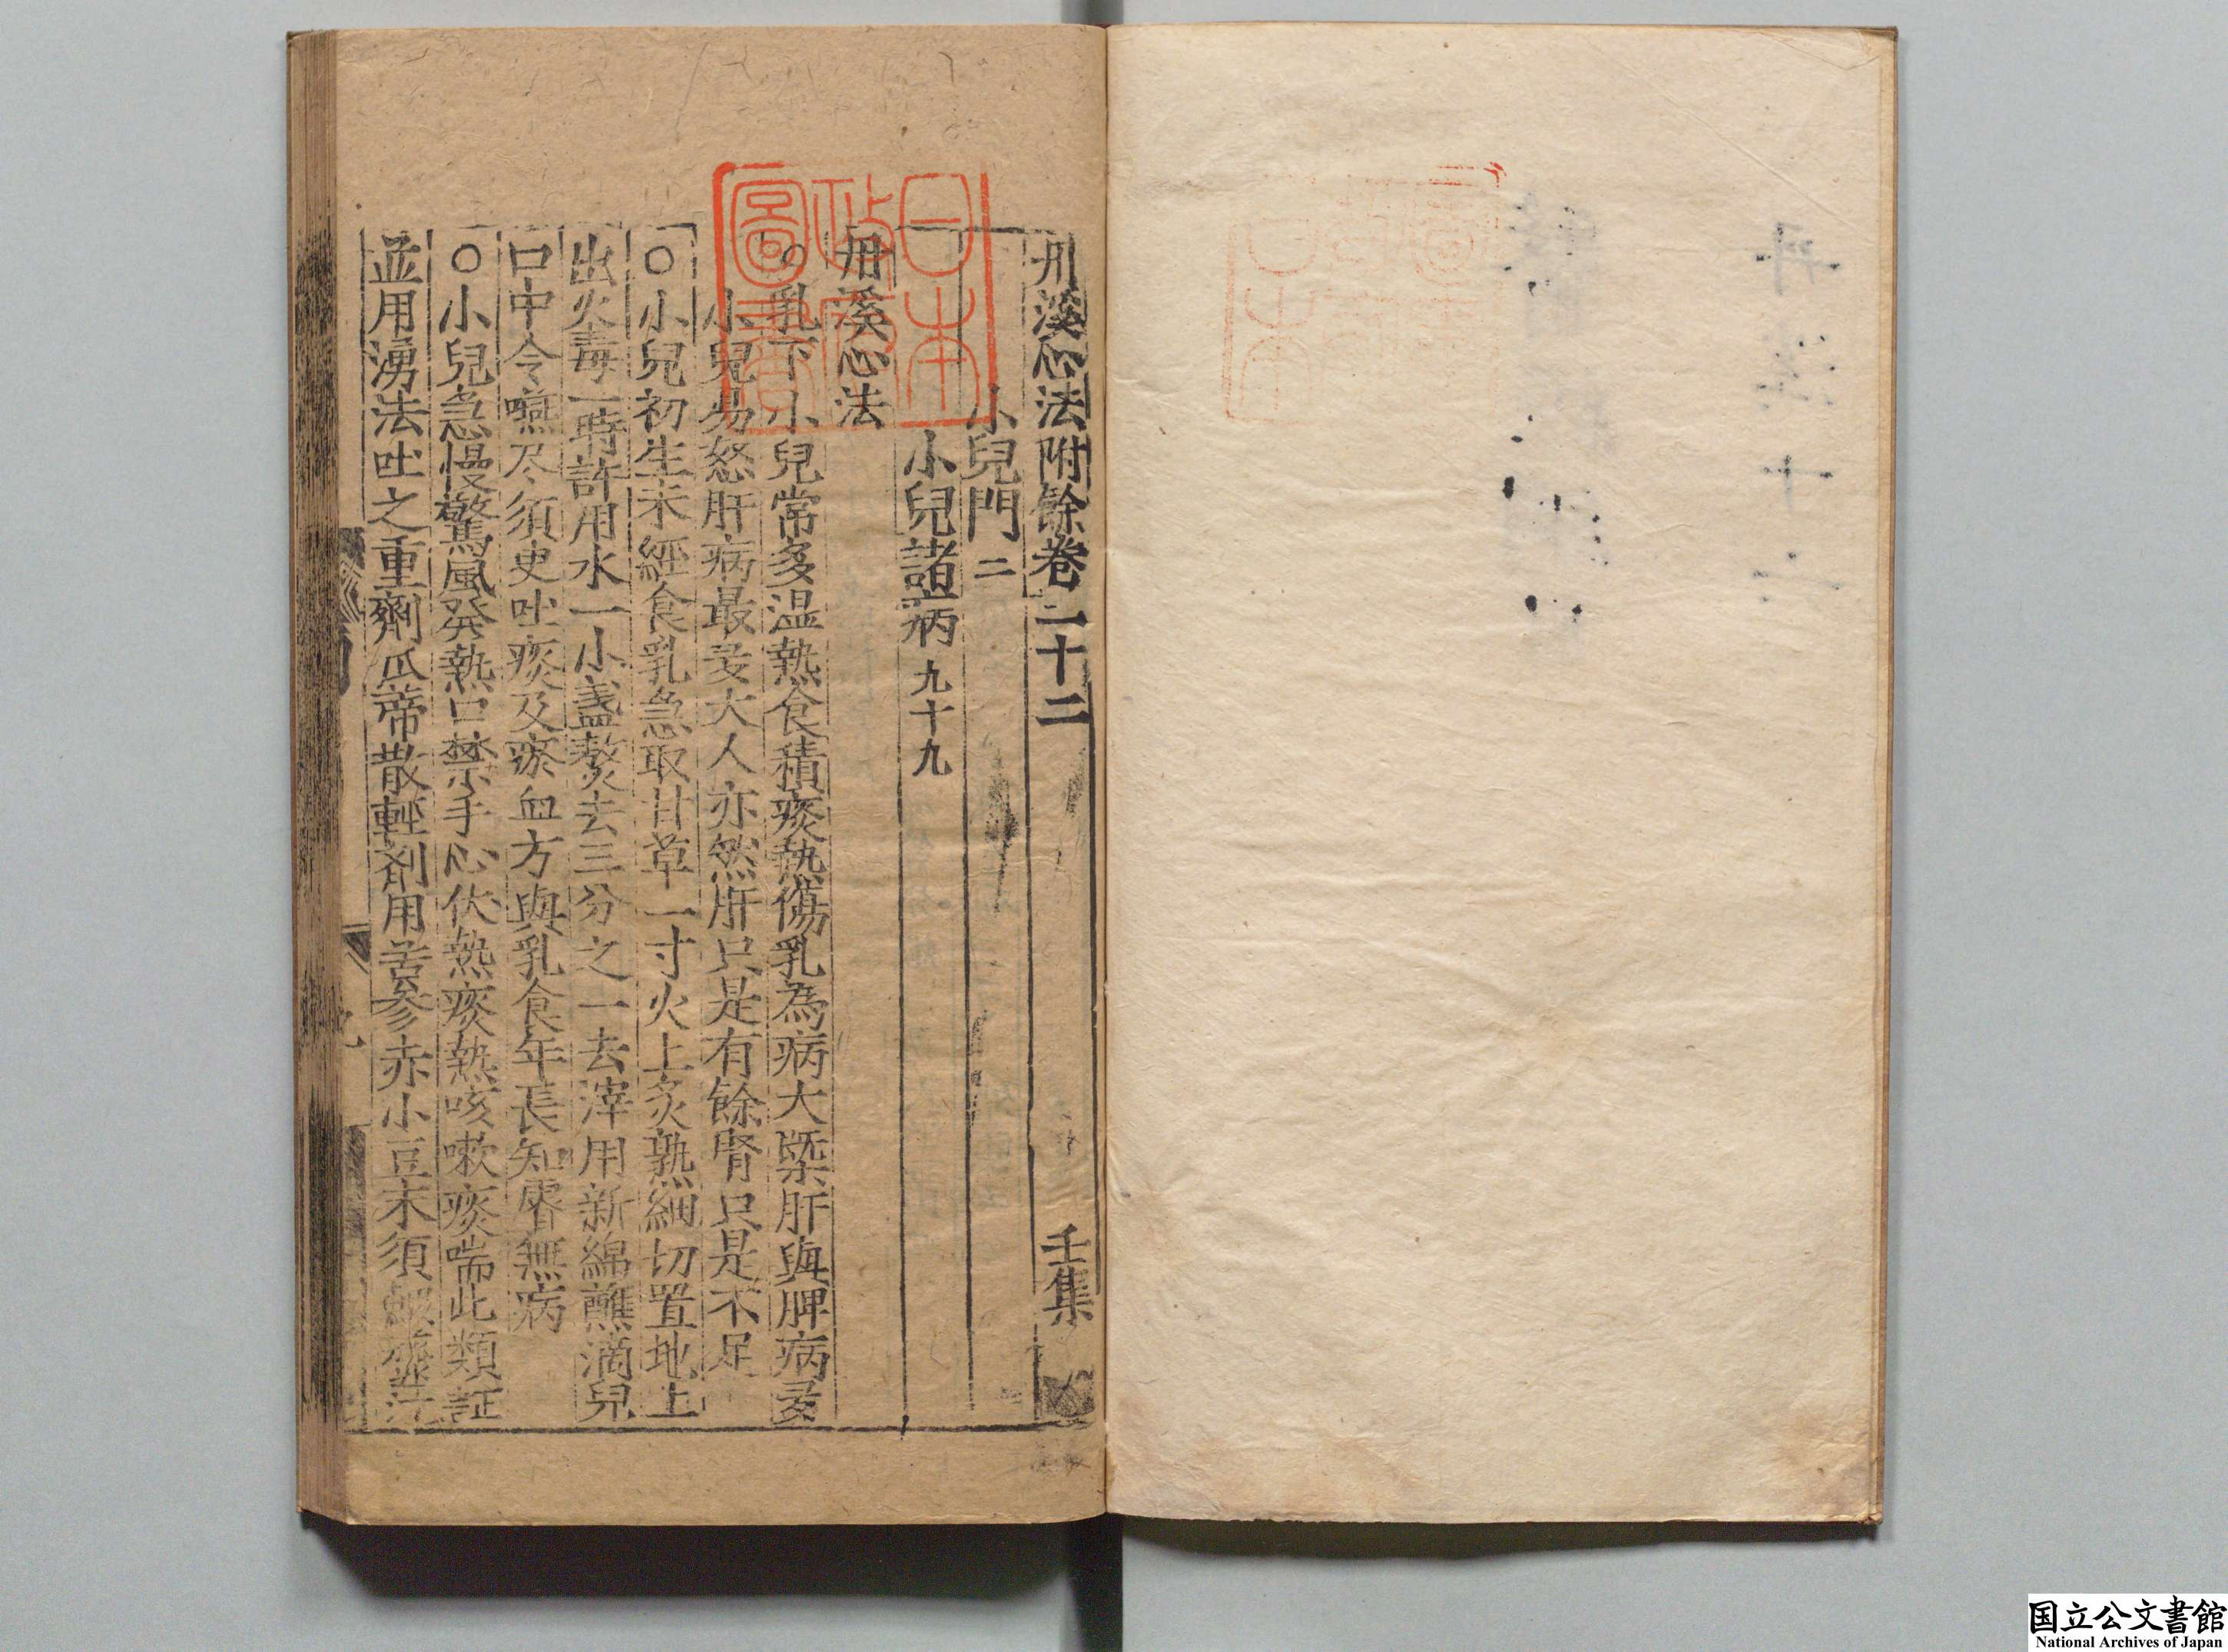 丹溪心法附餘卷二十二 壬集
小兒門 二
小兒諸病 九十九
丹溪心法
○乳下小兒常多温熱食積痰熱傷乳為病大槩肝與脾病多
小兒易怒肝病最多大人亦然肝只是有餘腎只是不足
○小兒初生未經食乳急取甘草一寸火上炙熟細切置地上
出火毒一時許用水一小盞熬去三分之一去滓用新綿蘸滴兒
口中令嚥尽須吏吐痰及瘀血方與乳食年長知睿無病
○小兒急慢驚風發熱口禁手心伏熱痰熱咳嗽痰喘此類証
並用湧法吐之重劑瓜蒂散輕剤用苦参赤小豆末須蝦虀汁
日本政府圖書
国立公文書館
National Archives of Japan